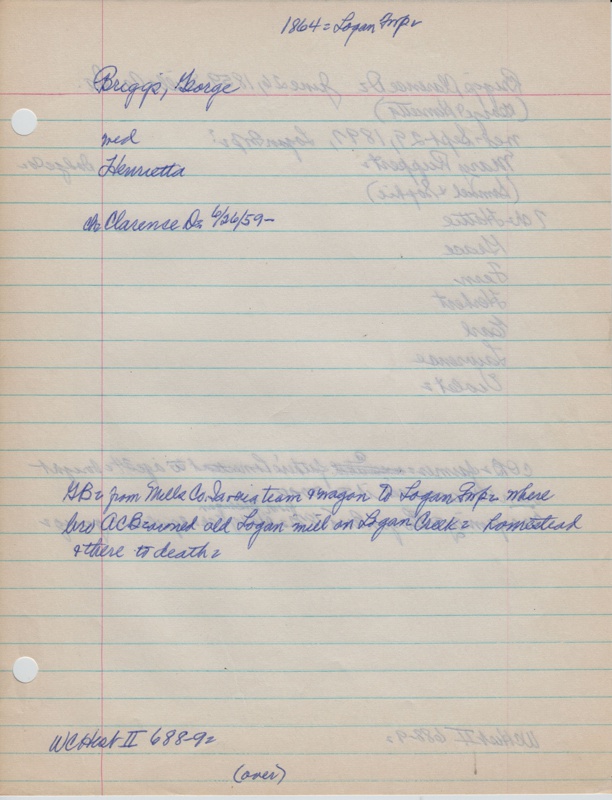 1864 = Logan Twp.
Briggs, George
md
Henrietta
ch Clarence D. 6/26/59 -
GB = from Mills Co. Ia via team & wagon to Logan Twp. where
bro A C B owned old Logan mill on Logan Creek = homestead
& there to death =
WC Hist II 688-9 =
(over)